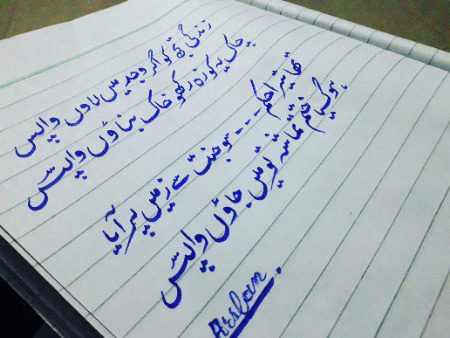 زندگی تجھ کو اگر وجد میں لاؤں واپس
چاک پہ کوزہ رکھو خاک بناؤں واپس
تھا تیرا حکم --- سو جنت سے زمیں پر آیا
ہو گیا ختم تماشہ تو میں جاؤں واپس
Arslan